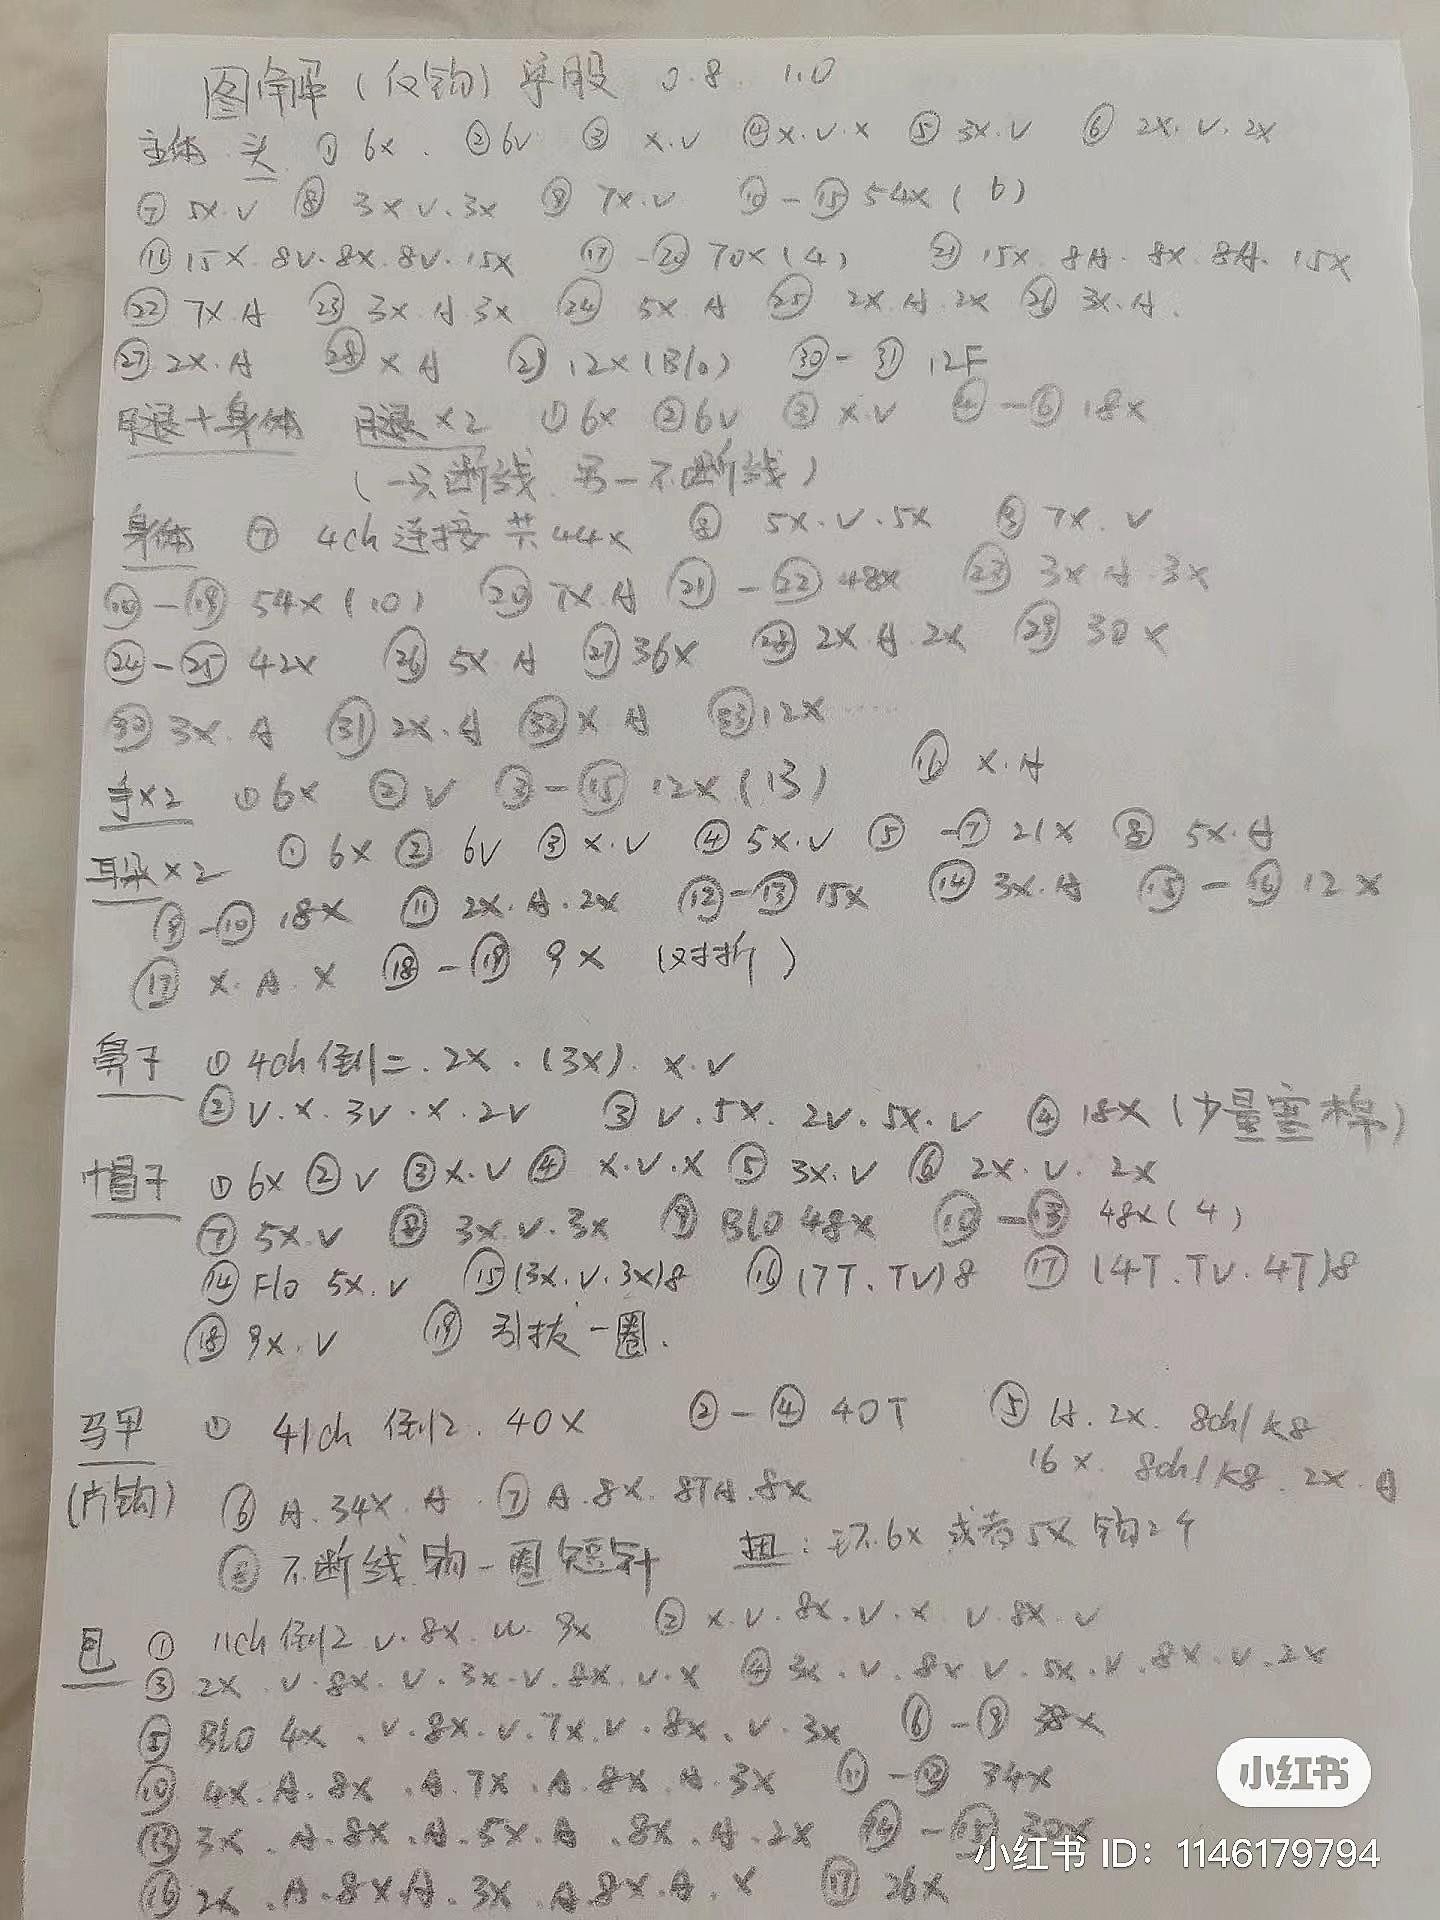 图解（仅钩）单股 0.8. 1.0
主体 头 ① 6x. ②6v ③ x.v ④x.v.x ⑤ 3x.v ⑥ 2x.v.2x
⑦ 5x.v ⑧ 3x v.3x ⑨ 7x.v ⑩-⑮ 54x(6)
⑯ 15x.8v.8x.8v.15x ⑰-⑳ 70x(4) ㉑ 15x.8A.8x.8A.15x
㉒ 7x.A ㉓ 3x.A.3x ㉔ 5x A ㉕ 2x.A.2x ㉖ 3x.A.
㉗ 2x.A ㉘ x A ㉙ 12x(Blo) ㉚-㉛ 12F
腿+身体 腿x2 ①6x ②6v ③ x.v ④-⑥ 18x
（一只断线 另一不断线）
身体 ⑦ 4ch连接 共44x ⑧ 5x.v.5x ⑨ 7x.v
⑩-⑲ 54x(10) ⑳ 7x.A ㉑-㉒ 48x ㉓ 3x A.3x
㉔-㉕ 42x ㉖ 5x A ㉗ 36x ㉘ 2x.A.2x ㉙ 30x
㉚ 3x.A ㉛ 2x.A ㉜ x A ㉝ 12x
手x2 ①6x ② v ③-⑮ 12x(13) ⑯ x.A
耳朵x2 ① 6x ② 6v ③ x.v ④ 5x.v ⑤-⑦ 21x ⑧ 5x.A
⑨-⑩ 18x ⑪ 2x.A.2x ⑫-⑬ 15x ⑭ 3x.A ⑮-⑯ 12x
⑰ x.A.x ⑱-⑲ 9x (对折)
鼻子 ① 4ch倒二.2x.(3x).x.v
② v.x.3v.x.2v ③ v.5x.2v.5x.v ④ 18x(少量塞棉)
帽子 ① 6x ② v ③ x.v ④ x.v.x ⑤ 3x.v ⑥ 2x.v.2x
⑦ 5x.v ⑧ 3x.v.3x ⑨ Blo 48x ⑩-⑬ 48x(4)
⑭ Flo 5x.v ⑮(3x.v.3x)8 ⑯(7T.TV)8 ⑰ (4T.TV.4T)8
⑱ 9x.v ⑲ 引拔一圈.
马甲 ① 41ch 倒2.40x ②-④ 40T ⑤ A.2x.8ch1k8
16x.8ch1k8.2x.A
(片钩) ⑥ A.34x.A. ⑦ A.8x.8TA.8x
⑧ 不断线钩一圈短针 扭：环.6x 或者5x 钩2个
包 ① 11ch 倒2 v.8x.w.9x ② x.v.8x.v.x.v.8x.v
③ 2x.v.8x.v.3x.v.8x.v.x ④ 3x.v.8x v.5x.v.8x.v.2x
⑤ Blo 4x.v.8x.v.7x.v.8x.v.3x ⑥-⑨ 38x
⑩ 4x.A.8x.A.7x.A.8x.A.3x ⑪-⑫ 34x
⑬ 3x.A.8x.A.5x.A.8x.A.2x ⑭-⑮ 30x
⑯ 2x.A.8x A.3x.A.8x.A.x ⑰ 26x
小红书
小红书 ID：1146179794